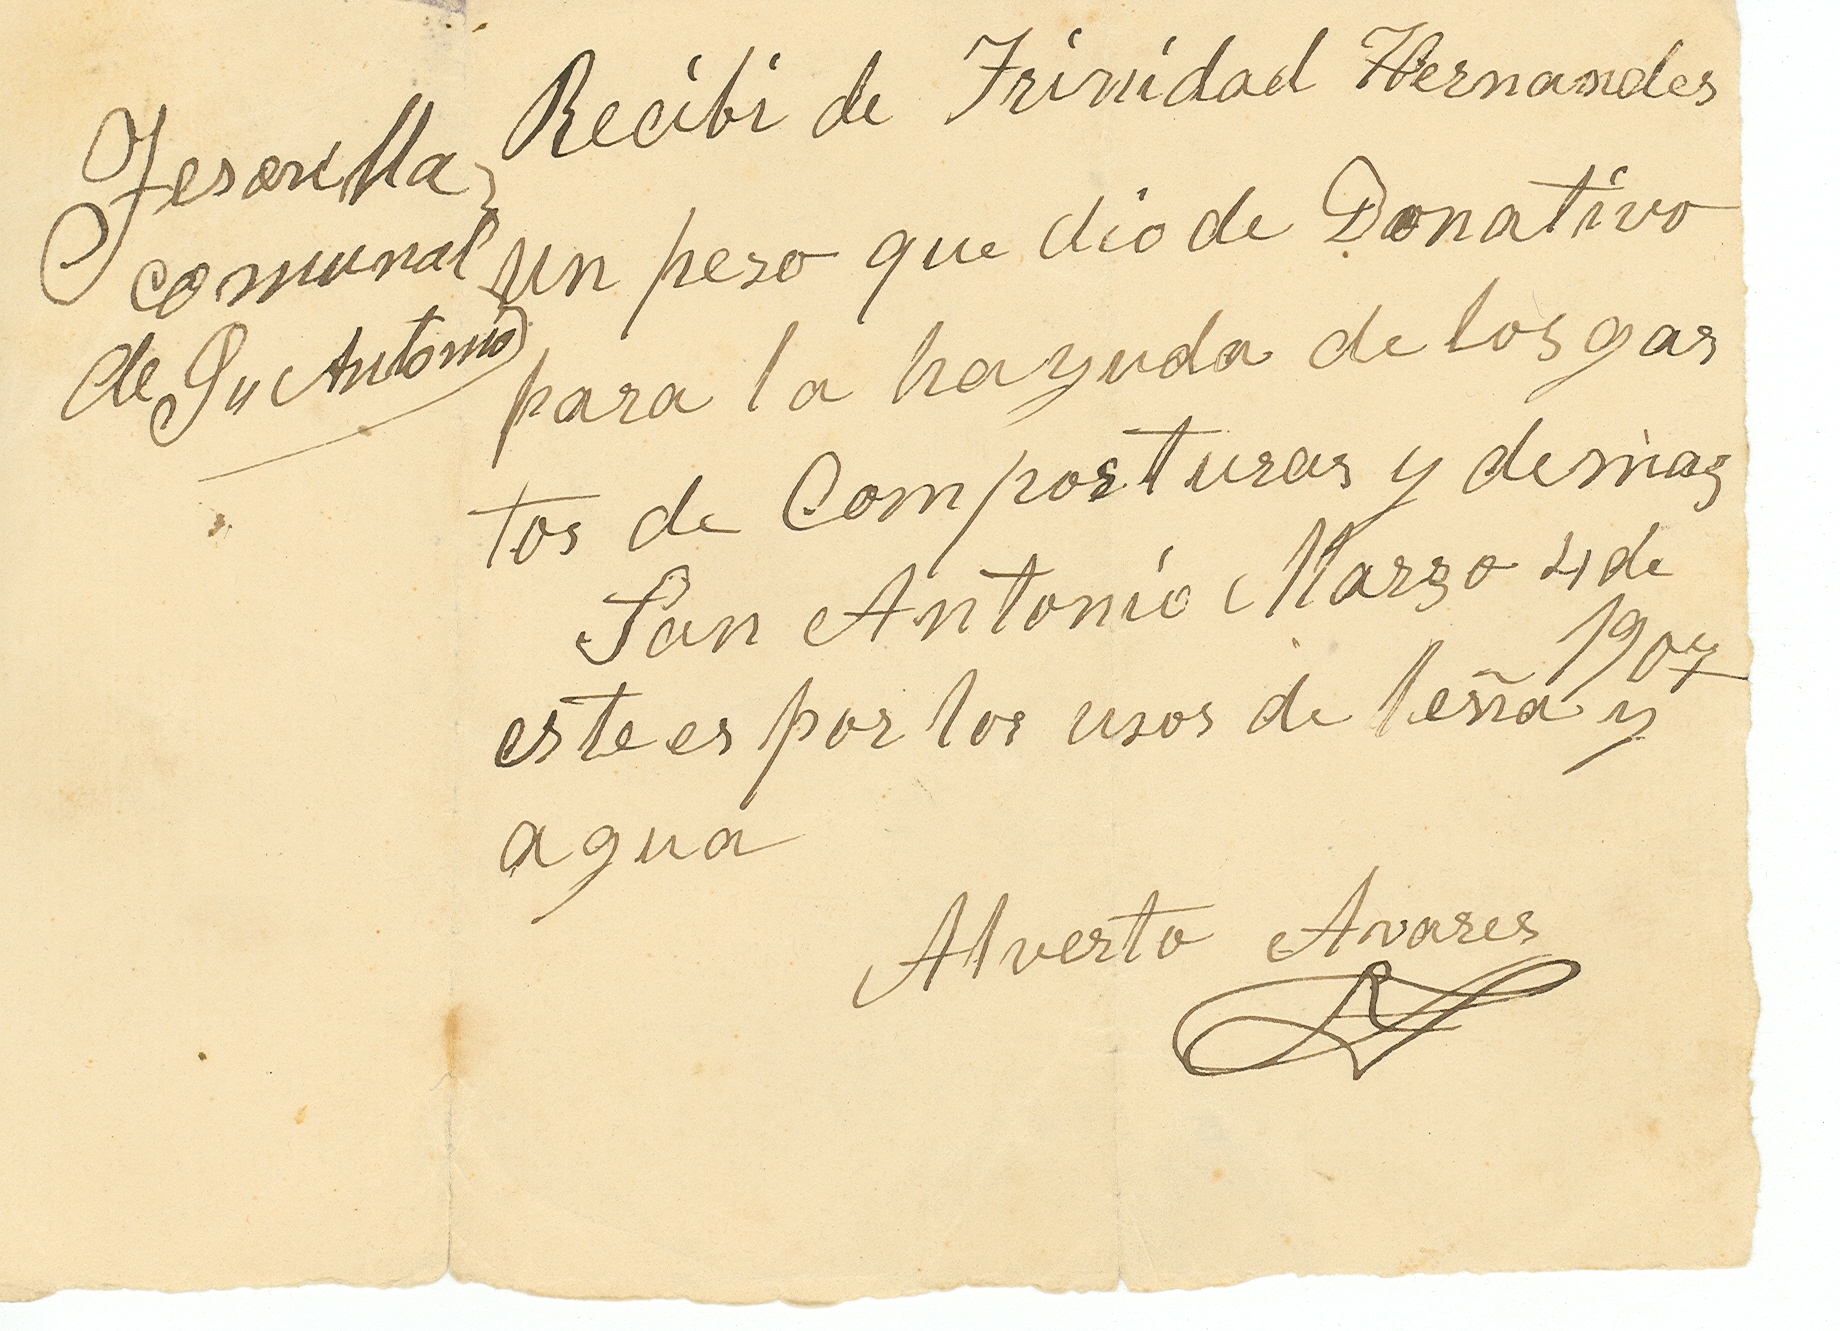 Tesorilla
comunal
de Sn Antonio
Recibi de Trinidad Hernandes
un peso que dio de Donativo
para la hayuda de los gas
tos de Composturas y demas
San Antonio Marzo 4 de
1907
este es por los usos de leña y
agua
Alverto Avares